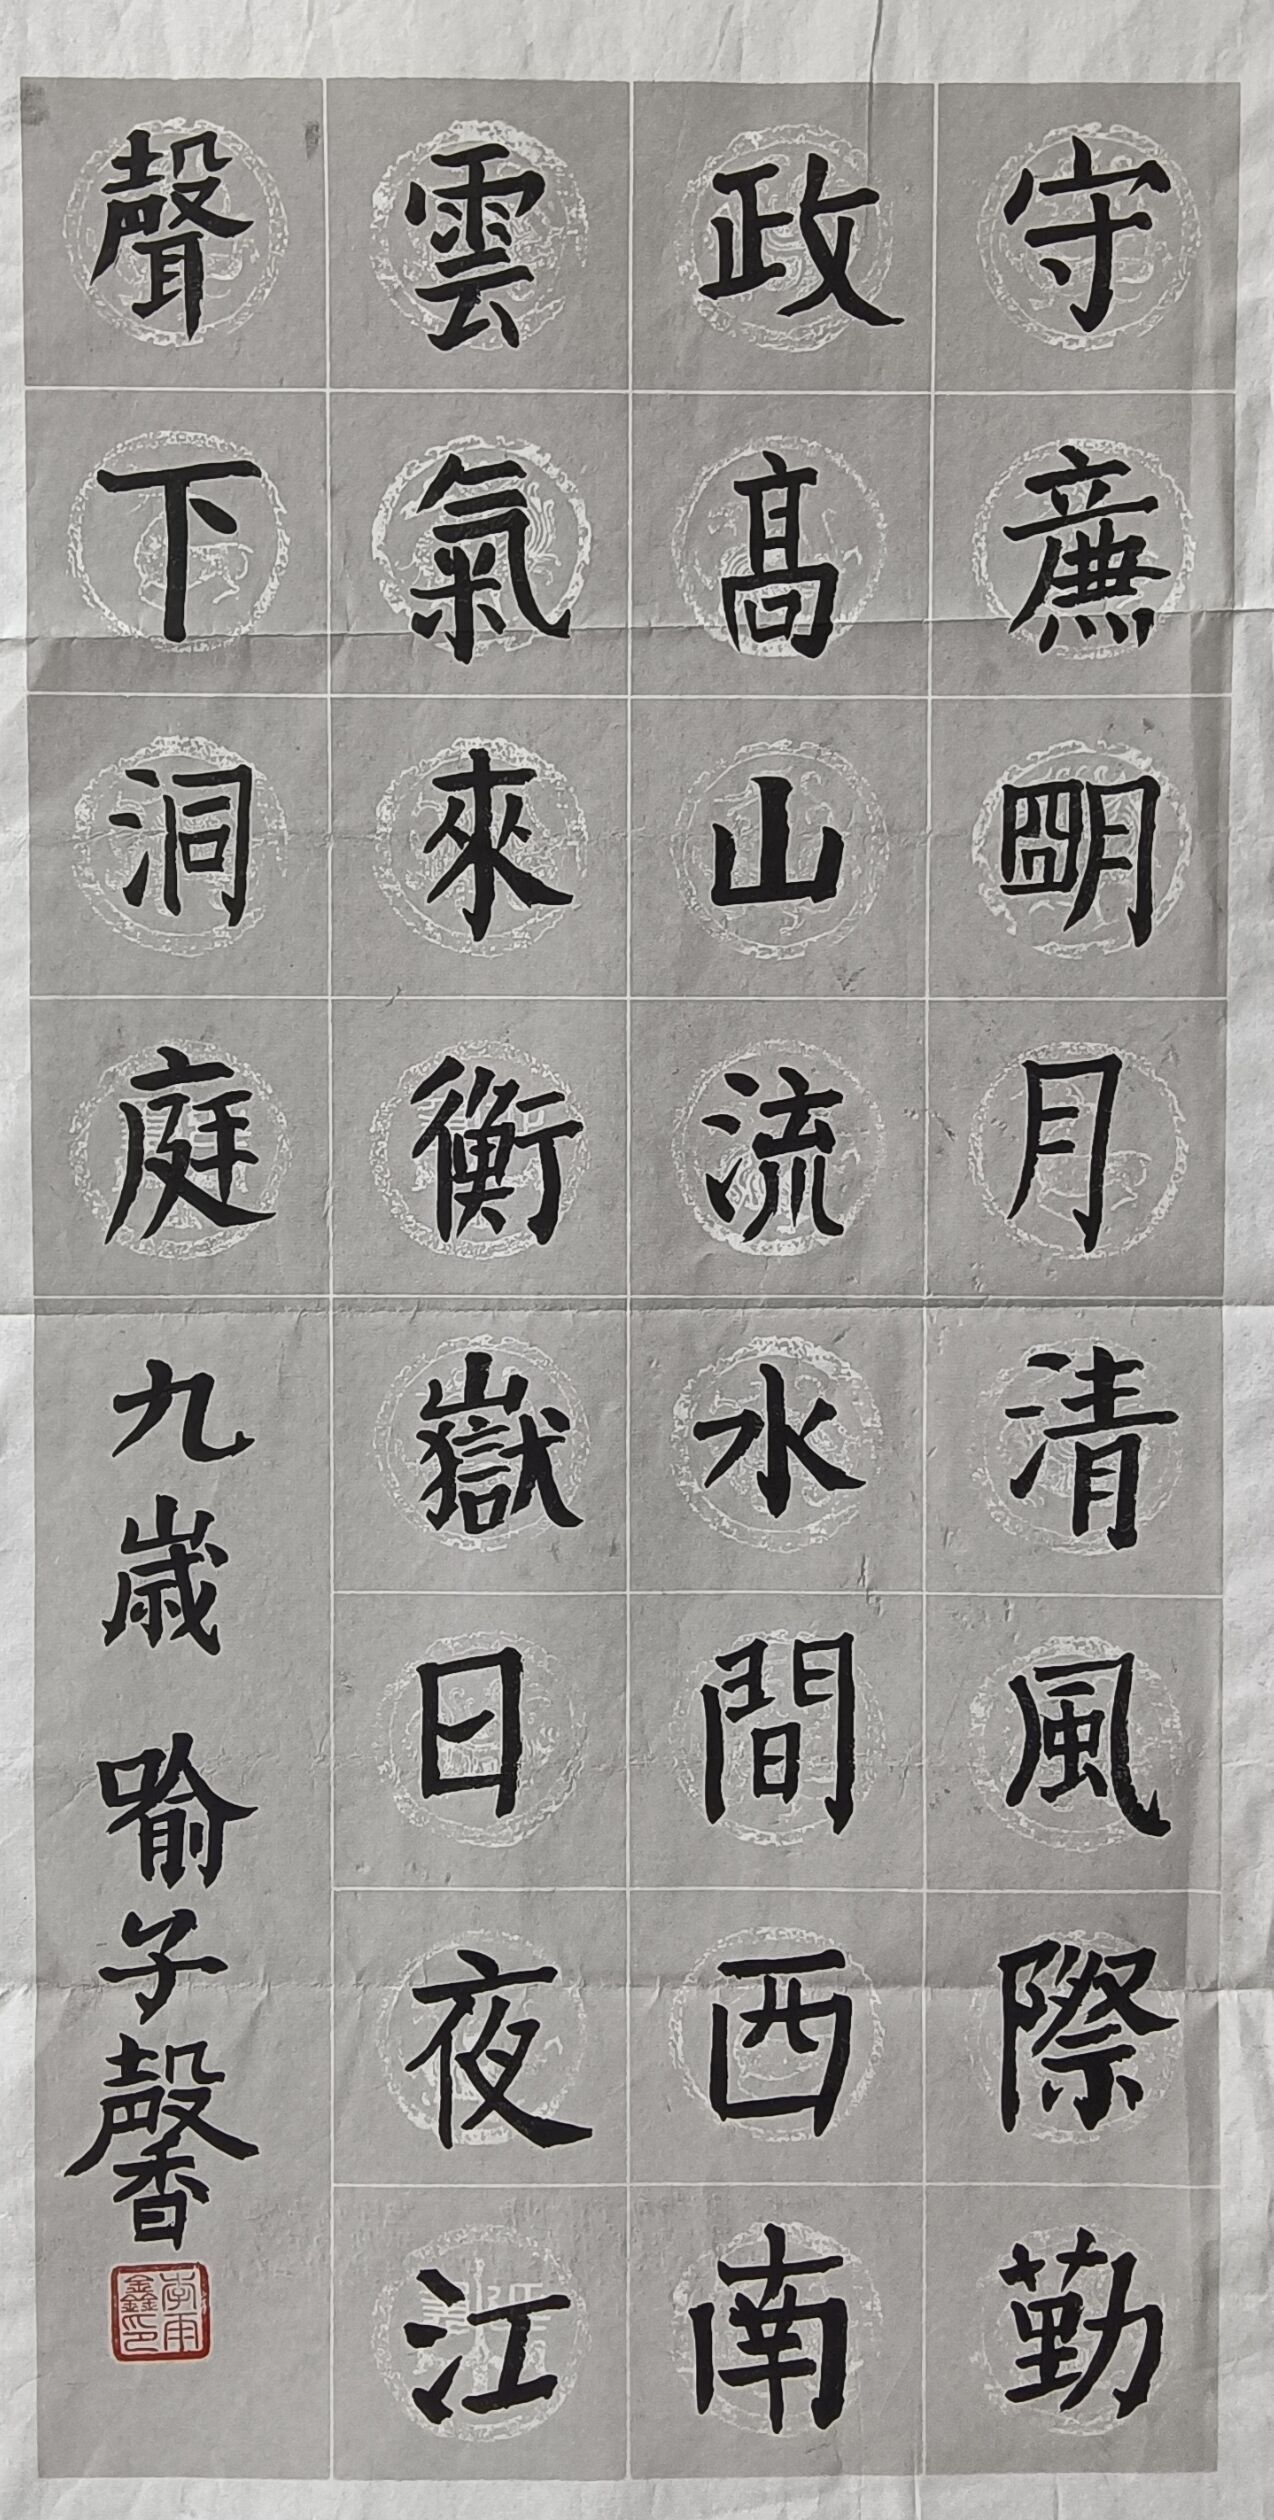 守廉朙月清風際勤
政高山流水間西南
雲氣來衡嶽日夜江
聲下洞庭
九歲 喻子馨
李雨鑫印